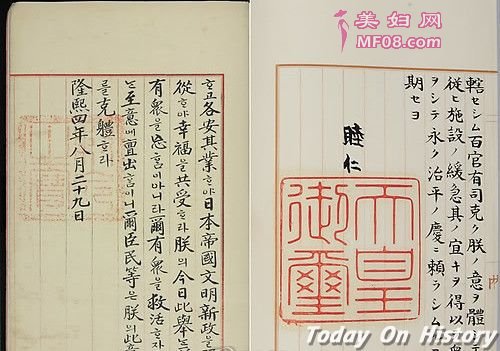 美妇网
MF08.com
ᄒᆞ고各安其業ᄒᆞ야日本帝國文明新政을
從ᄒᆞ야幸福을共受ᄒᆞ라朕의今日此舉는
有衆을忘홈이아니라爾有衆을救活ᄒᆞ
는至意에亶出홈이니爾臣民等은朕의此意
를克體ᄒᆞ라
隆熙四年八月二十九日
轄セシム百官有司克ク朕ノ意ヲ體
從ヒ施設ノ緩急其ノ宜キヲ得以
ヲシテ永ク治平ノ慶ニ頼ラシム
期セヨ
睦仁
天皇
御璽
Today On History